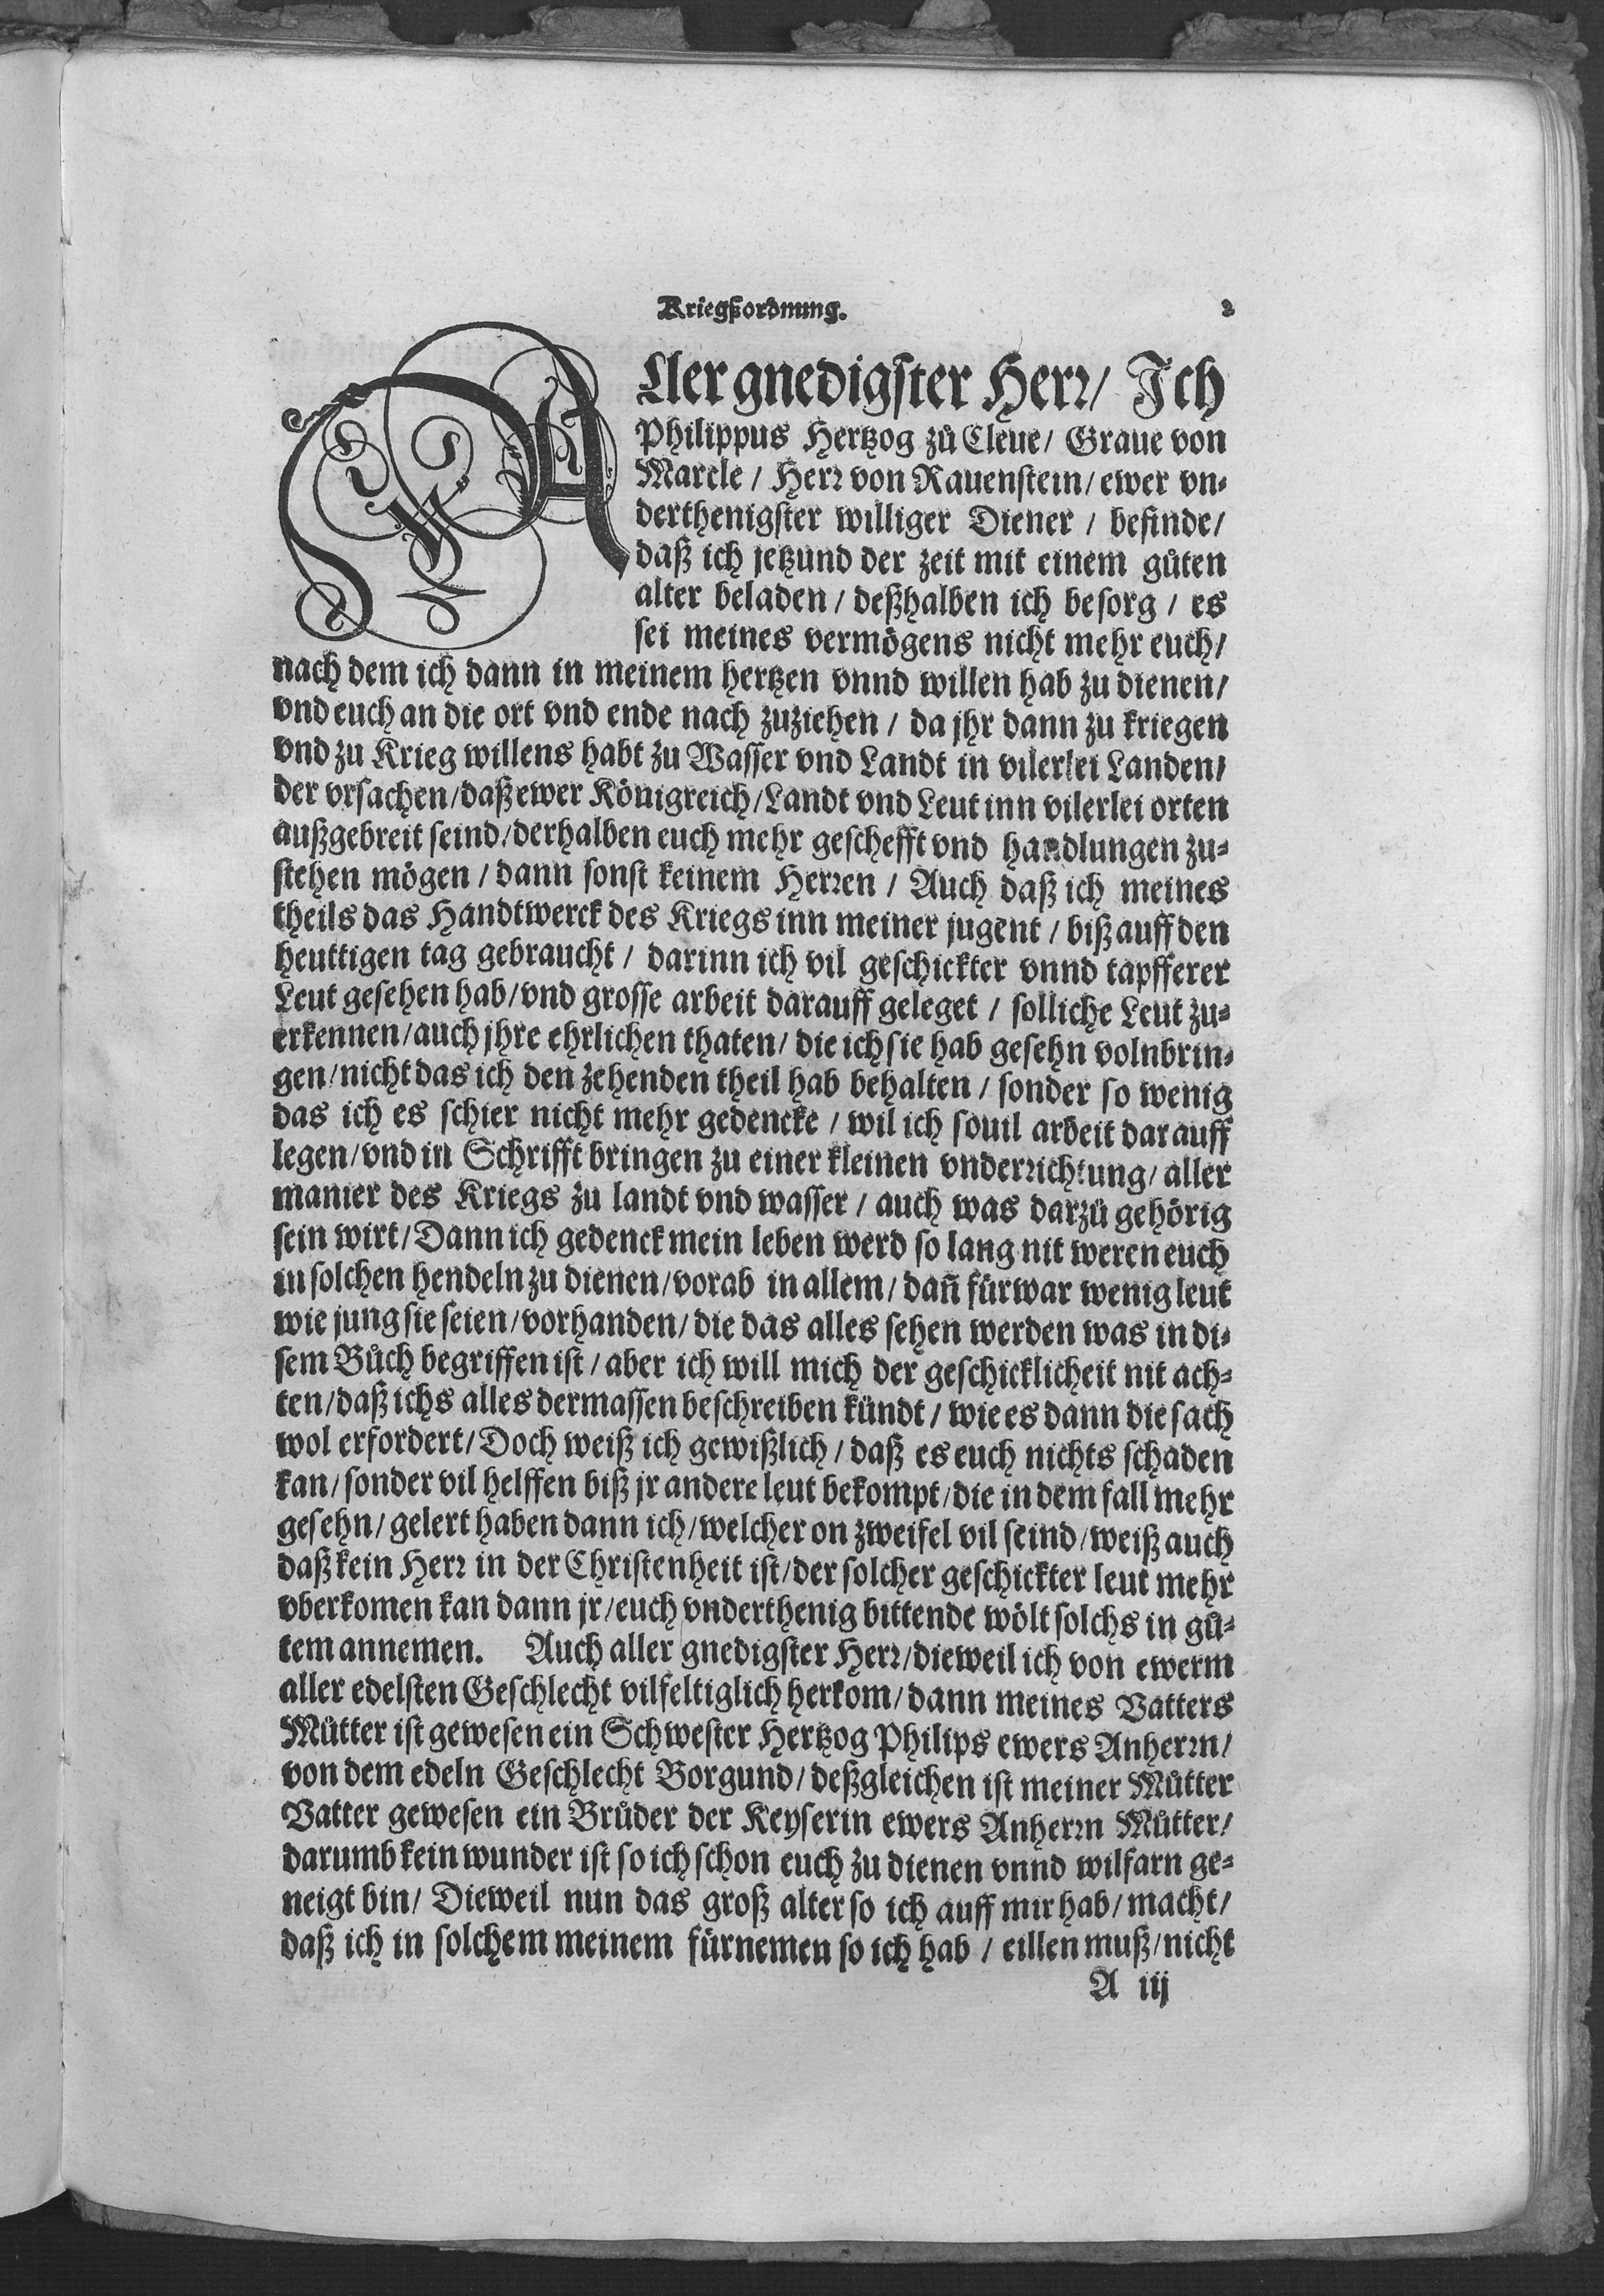 Kriegßordnung. 2
ALler gnedigster Herr/ Ich
Philippus Hertzog zů Cleue/ Graue von
Marcle/ Herr von Rauenstein/ ewer vn-
derthenigster williger Diener/ befinde/
daß ich jetzund der zeit mit einem gůten
alter beladen/ deßhalben ich besorg/ es
sei meines vermögens nicht mehr euch/
nach dem ich dann in meinem hertzen vnnd willen hab zu dienen/
vnd euch an die ort vnd ende nach zuziehen/ da jhr dann zu kriegen
vnd zu Krieg willens habt zu Wasser vnd Landt in vilerlei Landen/
der vrsachen/ daß ewer Königreich/ Landt vnd Leut inn vilerlei orten
außgebreit seind/ derhalben euch mehr geschefft vnd handlungen zu-
stehen mögen/ dann sonst keinem Herren/ Auch daß ich meines
theils das Handtwerck des Kriegs inn meiner jugent/ biß auff den
heuttigen tag gebraucht/ darinn ich vil geschickter vnnd tapfferer
Leut gesehen hab/ vnd grosse arbeit darauff geleget/ solliche Leut zu-
erkennen/ auch jhre ehrlichen thaten/ die ich sie hab gesehn volnbrin-
gen/ nicht das ich den zehenden theil hab behalten/ sonder so wenig
das ich es schier nicht mehr gedencke/ wil ich souil arbeit darauff
legen/ vnd in Schrifft bringen zu einer kleinen vnderrichtung/ aller
manier des Kriegs zu landt vnd wasser/ auch was darzů gehörig
sein wirt/ Dann ich gedenck mein leben werd so lang nit weren euch
in solchen hendeln zu dienen/ vorab in allem/ dañ fürwar wenig leut
wie jung sie seien/ vorhanden/ die das alles sehen werden was in di-
sem Bůch begriffen ist/ aber ich will mich der geschicklicheit nit ach-
ten/ daß ichs alles dermassen beschreiben kündt/ wie es dann die sach
wol erfordert/ Doch weiß ich gewißlich/ daß es euch nichts schaden
kan/ sonder vil helffen biß jr andere leut bekompt/ die in dem fall mehr
gesehn/ gelert haben dann ich/ welcher on zweifel vil seind/ weiß auch
daß kein Herr in der Christenheit ist/ der solcher geschickter leut mehr
vberkomen kan dann jr/ euch vnderthenig bittende wölt solchs in gů-
tem annemen. Auch aller gnedigster Herr/ dieweil ich von ewerm
aller edelsten Geschlecht vilfeltiglich herkom/ dann meines Vatters
Můtter ist gewesen ein Schwester Hertzog Philips ewers Anherrn/
von dem edeln Geschlecht Borgund/ deßgleichen ist meiner Můtter
Vatter gewesen ein Brůder der Keyserin ewers Anherrn Můtter/
darumb kein wunder ist so ich schon euch zu dienen vnnd wilfarn ge-
neigt bin/ Dieweil nun das groß alter so ich auff mir hab/ macht/
daß ich in solchem meinem fürnemen so ich hab/ eillen muß/ nicht
A iij